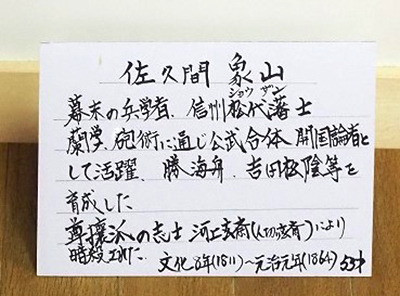 佐久間 象山
ショウ ザン
幕末の兵学者、信州松代藩士
蘭学、砲術に通じ公武合体 開国論者と
して活躍、勝海舟、吉田松陰等を
育成した
尊攘派の志士 河上玄斎(人切玄斎)により
時殺された、 文化8年(1811)~元治元年(1864) 53才